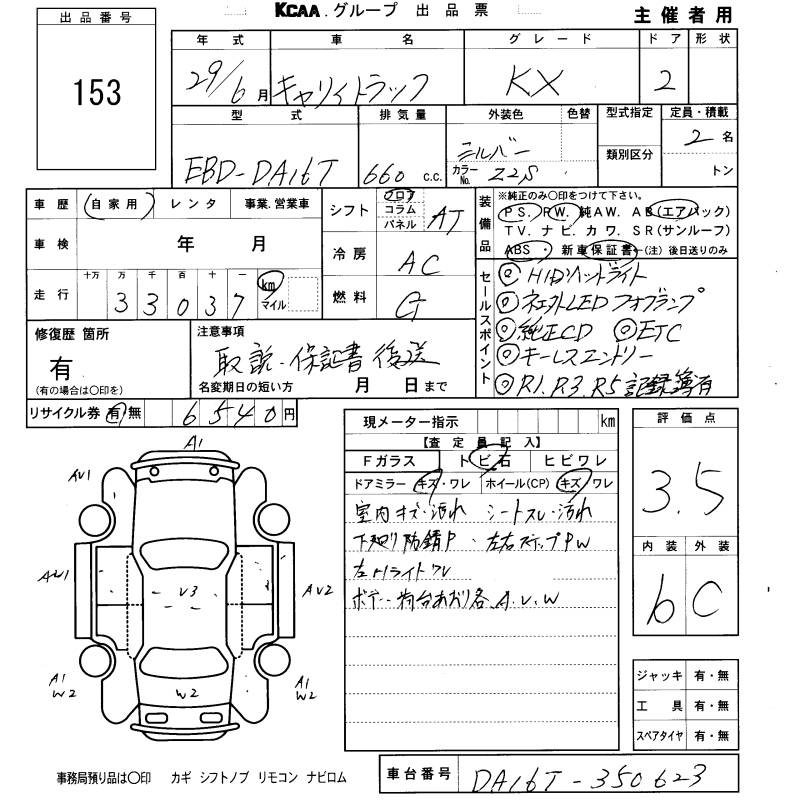 KCAA.グループ 出品票 主催者用
出品番号
153
年式 車名 グレード ドア 形状
29/6月 キャリイトラック KX 2
型式 排気量 外装色 色替 型式指定 定員・積載
EBD-DA16T 660 c.c. シルバー カラーNo. Z2S 類別区分 2名 トン
車歴 自家用 レンタ 事業.営業車 シフト フロア コラム パネル AT
装備品 ※純正のみ〇印をつけて下さい。
PS. PW. 純AW. AB(エアバック)
TV. ナビ. カワ. SR(サンルーフ)
ABS・ 新車保証書(注) 後日送りのみ
車検 年 月 冷房 AC
走行 十万 万 千 百 十 一 km マイル 燃料 G
33037
セールスポイント
◎HIDヘッドライト
◎LEDフォグランプ
◎純正CD ◎ETC
◎キーレスエントリー
◎R1.R3.R5記録簿有
修復歴 箇所
有
(有の場合は〇印を)
注意事項
取説・保証書後送
名変期日の短い方 月 日まで
リサイクル券 有 無 6540円
現メーター指示 km
【査定員記入】
Fガラス トビ石 ヒビワレ
ドアミラー キズ・ワレ ホイール(CP) キズ/ワレ
室内キズ・汚れ シートスレ・汚れ
下廻り防錆P・左右ステップPW
左Hライトワレ
ボデー・荷台あおり各A.U.W
評価点
3.5
内装 外装
b C
A1
AU1
AW1
U3
AU2
A1
W2
W2
A1
W2
ジャッキ 有・無
工具 有・無
スペアタイヤ 有・無
事務局預り品は〇印 カギ シフトノブ リモコン ナビロム
車台番号 DA16T-350623